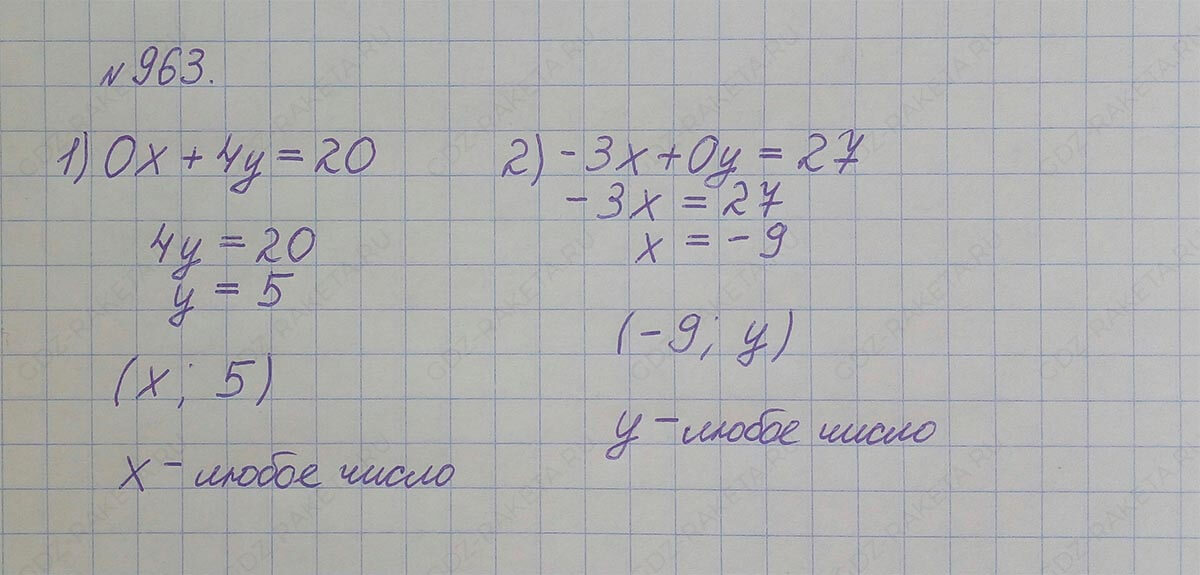 №963.
1) 0x + 4y = 20
4y = 20
y = 5
(x; 5)
x – любое число
2) -3x + 0y = 27
-3x = 27
x = -9
(-9; y)
y – любое число
GDZ-RAKETA.RU